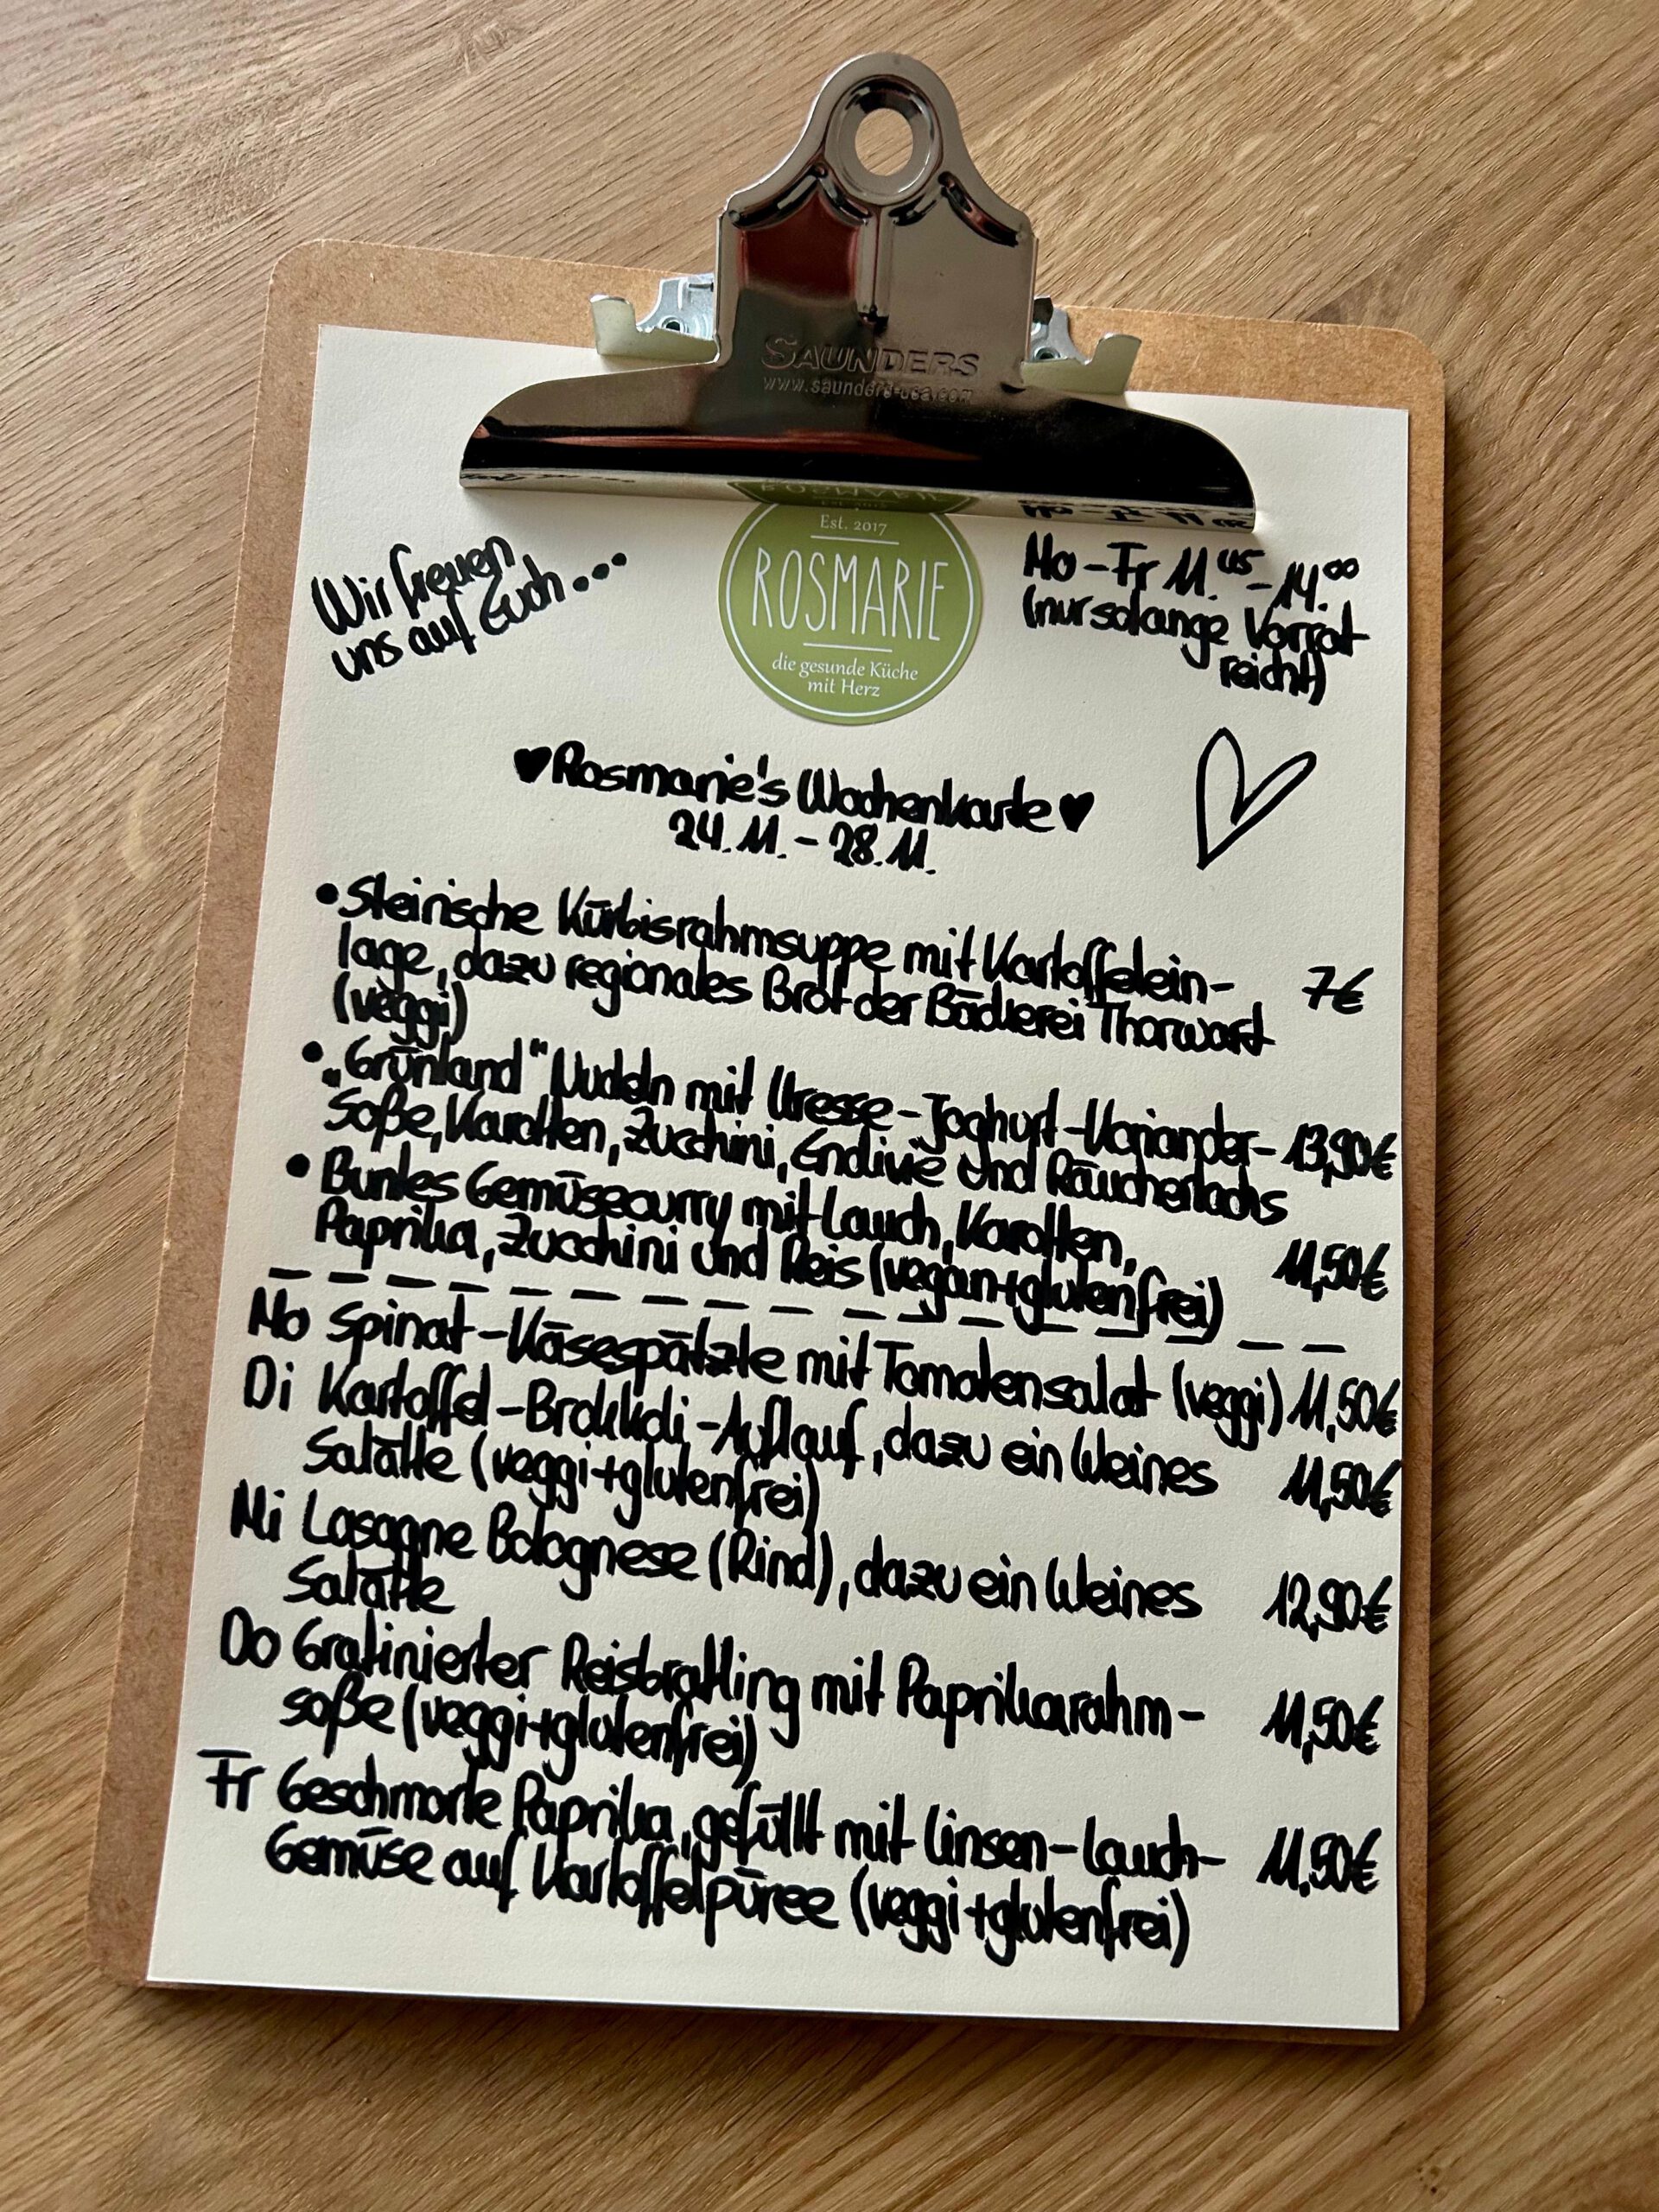 SAUNDERS
www.saunders-usa.com
Est. 2017
ROSMARIE
die gesunde Küche
mit Herz
Wir freuen
uns auf Euch...
Mo-Fr 11.45-14.00
(nur solange Vorrat
reicht)
♥Rosmarie's Wochenkarte♥
24.11.-28.11.
•Steirische Kürbisrahmsuppe mit Kartoffelein-
lage, dazu regionales Brot der Bäckerei Thorwart 7€
(veggi)
•„Grünland" Nudeln mit Kresse-Joghurt-Koriander- 13,90€
Soße, Karotten, Zucchini, Endivie und Räucherlachs
•Buntes Gemüsecurry mit Lauch, Karotten,
Paprika, Zucchini und Reis (vegan+glutenfrei) 11,50€
Mo Spinat-Käsespätzle mit Tomatensalat (veggi) 11,50€
Di Kartoffel-Brokkoli-Auflauf, dazu ein kleines
Salätle (veggi+glutenfrei) 11,50€
Mi Lasagne Bolognese (Rind), dazu ein kleines 12,90€
Salätle
Do Gratinierter Reisbratling mit Paprikarahm- 11,50€
soße (veggi+glutenfrei)
Fr Geschmorte Paprika, gefüllt mit Linsen-Lauch- 11,50€
Gemüse auf Kartoffelpüree (veggi+glutenfrei)